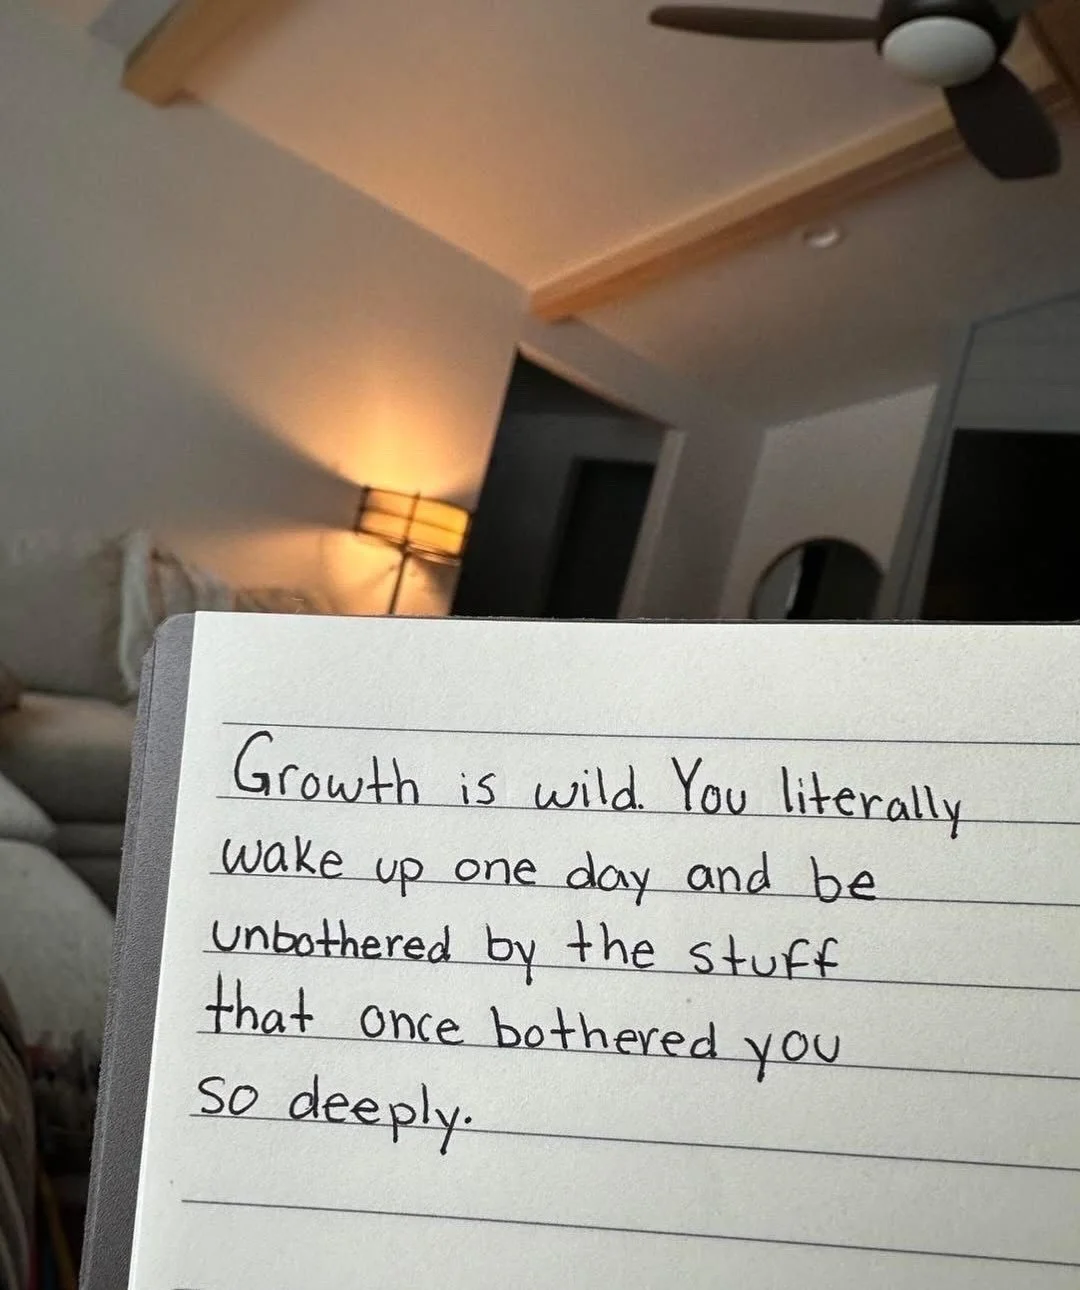 Growth is wild. You literally
wake up one day and be
unbothered by the stuff
that once bothered you
so deeply.